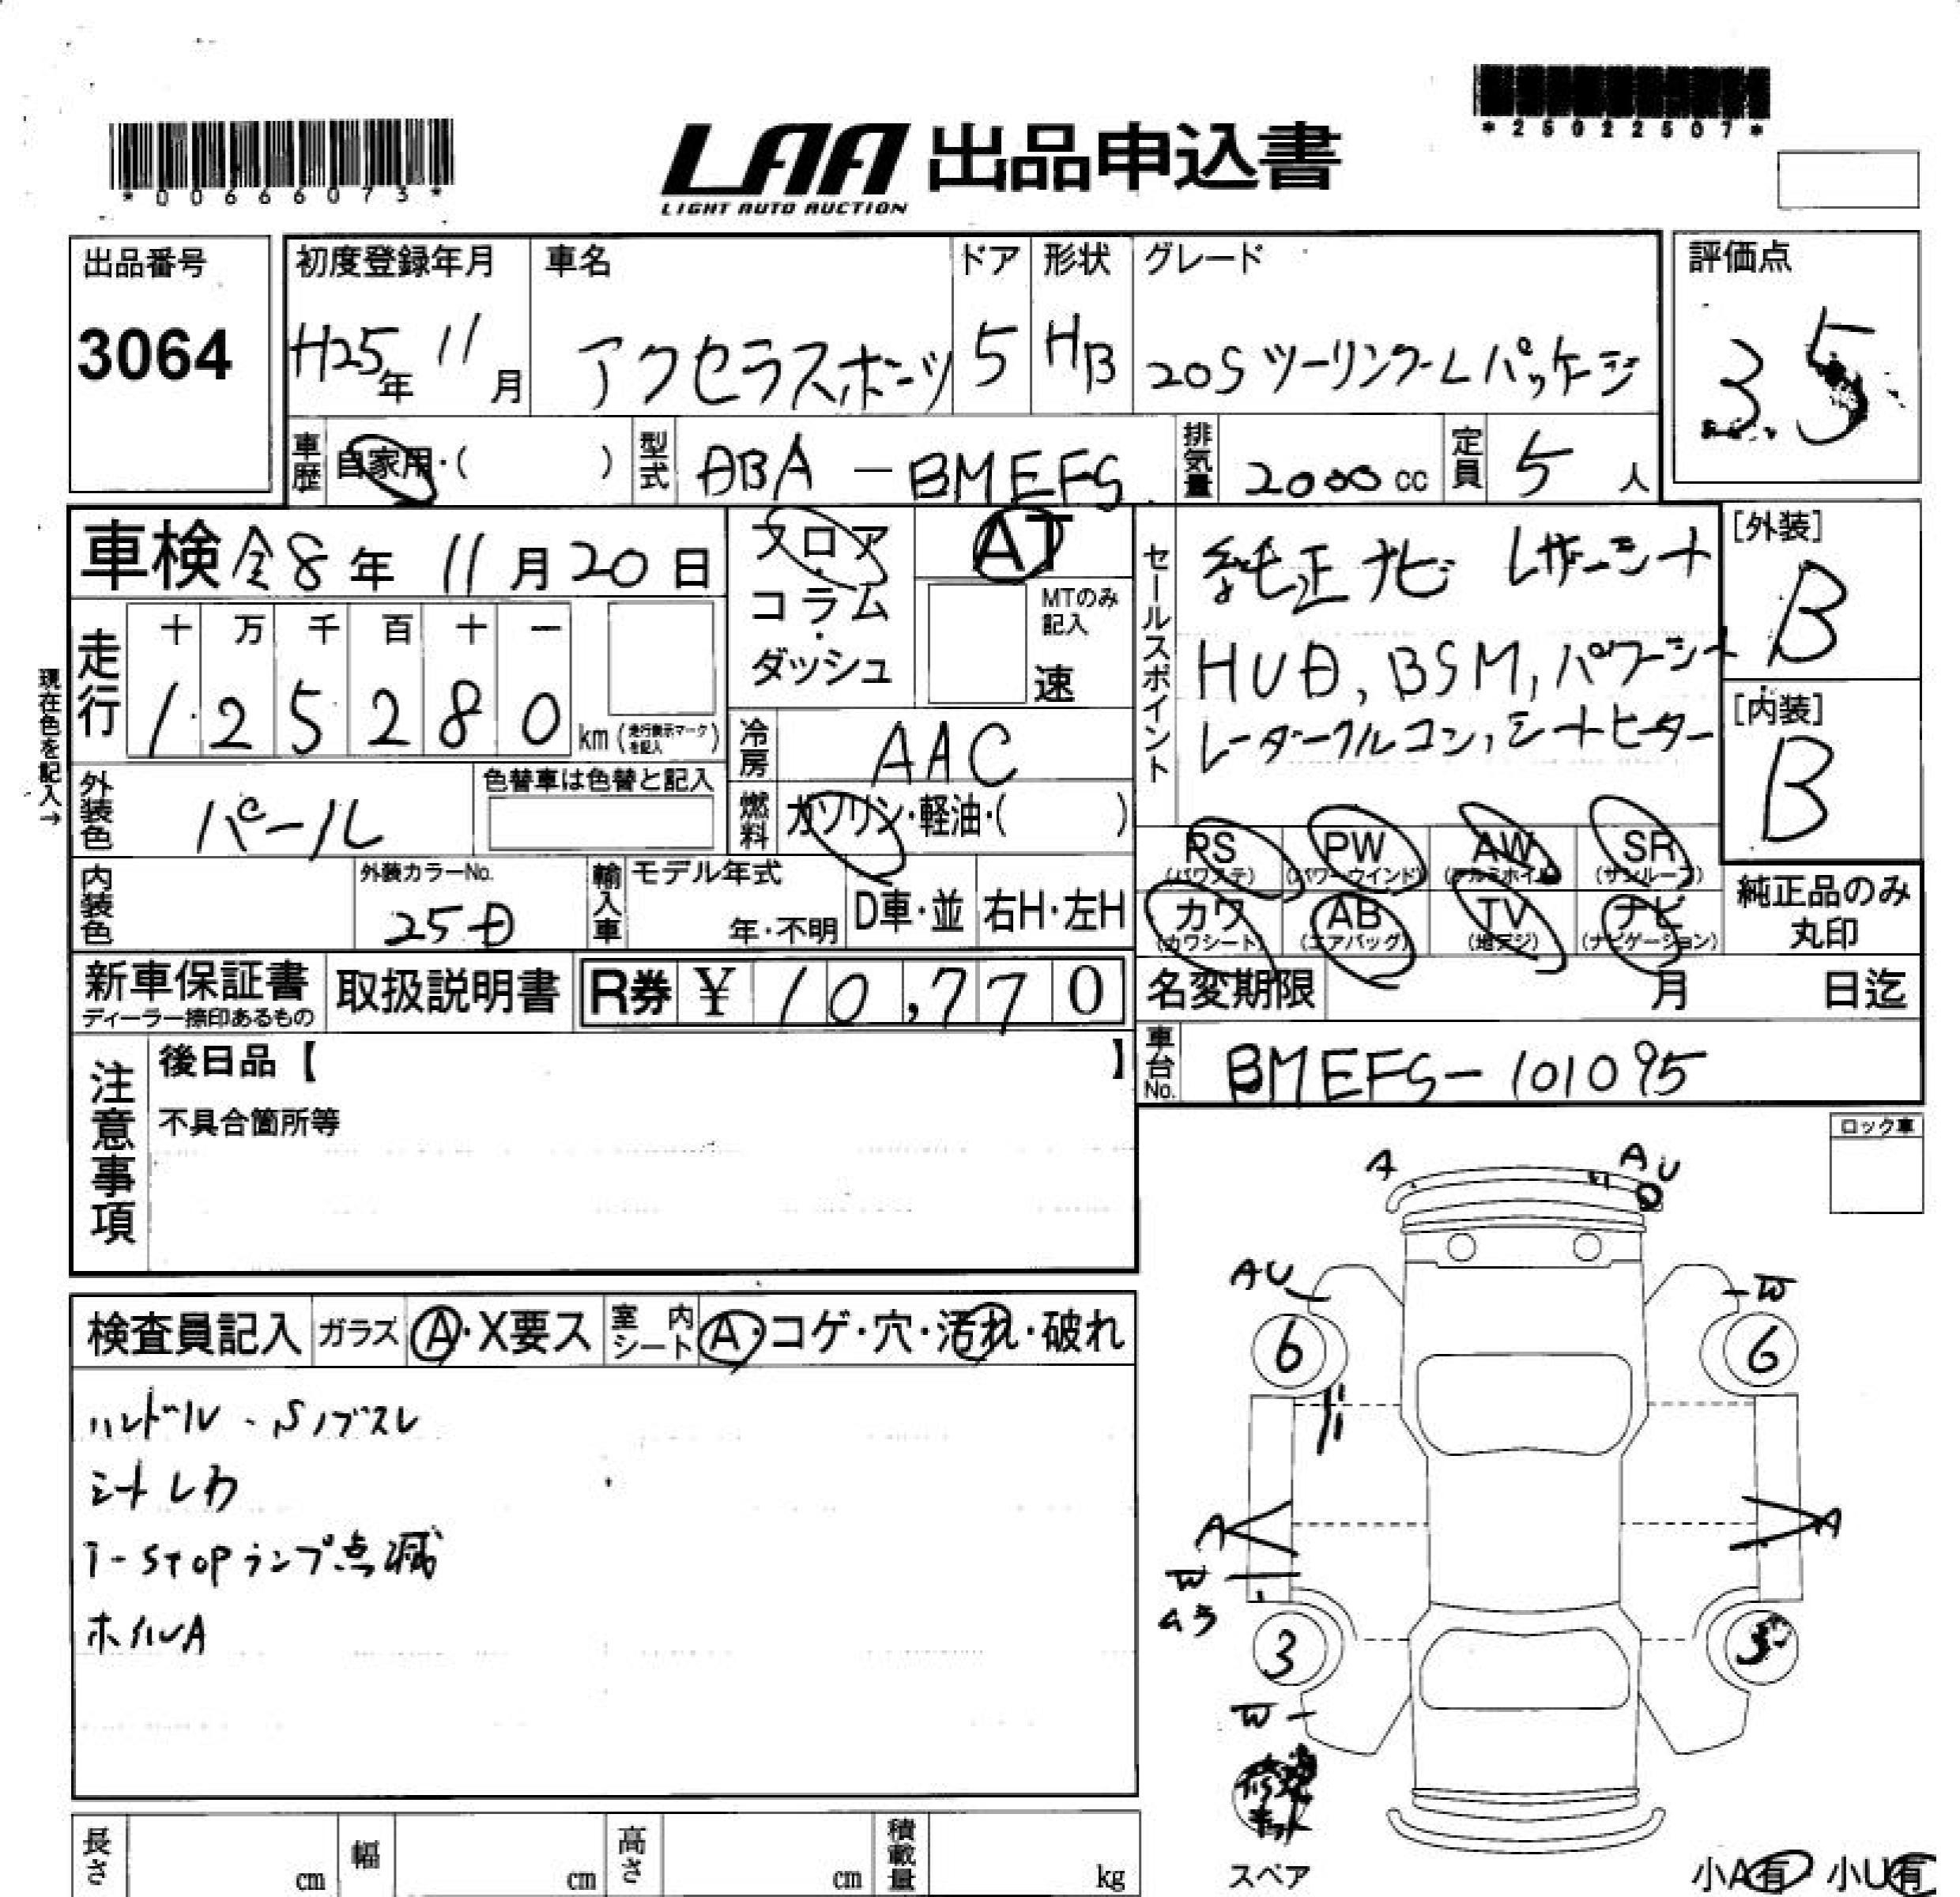 *25022507*
*00666073*
LAA 出品申込書
LIGHT AUTO AUCTION
出品番号
3064
初度登録年月
H25年 11月
車名
アクセラスポーツ
ドア
5
形状
HB
グレード
20S ツーリングLパッケージ
評価点
3.5
車歴
自家用・( )
型式
ABA - BMEFS
排気量
2000 cc
定員
5 人
車検 令8年 11月20日
フロア
コラム
・
ダッシュ
AT
MTのみ
記入
速
セールスポイント
純正ナビ レザーシート
HUD, BSM, パワーシート
レーダークルコン, シートヒーター
[外装]
B
[内装]
B
現在色を記入→
走行
十 万 千 百 十 一
1 2 5 2 8 0 km (走行表示マークを記入)
冷房
AAC
外装色
パール
色替車は色替と記入
燃料
ガソリン・軽油・( )
PS (パワステ)
PW (パワーウインド)
AW (アルミホイル)
SR (サンルーフ)
カワ (カワシート)
AB (エアバッグ)
TV (地デジ)
ナビ (ナビゲーション)
純正品のみ
丸印
内装色
外装カラーNo.
25D
輸入車
モデル年式
年・不明
D車・並
右H・左H
新車保証書
ディーラー捺印あるもの
取扱説明書
R券 ¥ 10,770
名変期限 月 日迄
車台No.
BMEFS-101095
注意事項
後日品【 】
不具合箇所等
ロック車
A
A U
AU
W
6
6
A
A
W
A5
3
5
W
修理キット
スペア
小A有 小U有
検査員記入
ガラス
A・X要ス
室内シート
A・コゲ・穴・汚れ・破れ
ハンドル・Sノブスレ
シートレカ
i-stopランプ点滅
ホイルA
長さ cm
幅 cm
高さ cm
積載量 kg